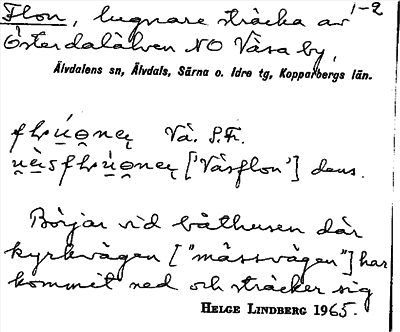 Flon, lugnare sträcka av 1-2
Österdalälven NO Våsa by,
Älvdalens sn, Älvdals, Särna o. Idre tg, Kopparbergs län.
Vå. S.Fr.
['Våsflon'] dens.
Börjar vid båthusen där
kyrkvägen ["mässvägen"] har
kommit ned och sträcker sig
HELGE LINDBERG 1965.